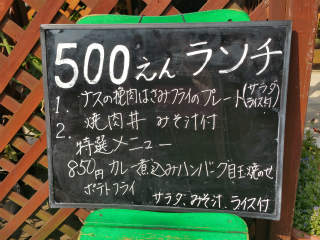 500えん ランチ
1. ナスの挽肉はさみフライのプレート(サラダ ライス付)
2. 焼肉丼 みそ汁付
特選メニュー
850円 カレー煮込みハンバーグ目玉焼のせ
ポテトフライ
サラダ、みそ汁、ライス付